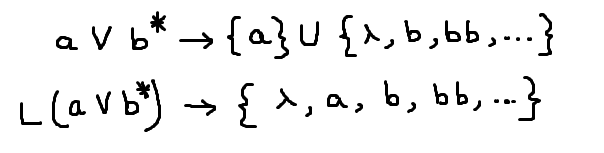 a ∨ b* → {a} ∪ {λ, b, bb, ...}
L(a ∨ b*) → {λ, a, b, bb, ...}